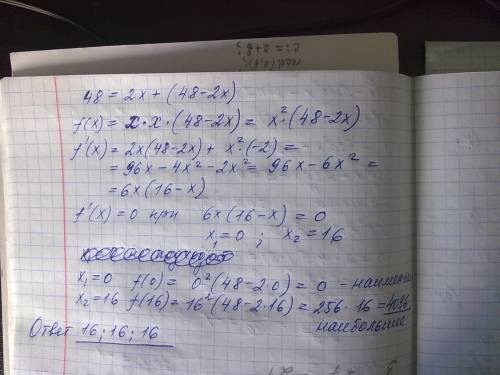 c := a+b;
read(a,b);
48 = 2x + (48-2x)
f(x) = x·x·(48-2x) = x²·(48-2x)
f'(x) = 2x(48-2x) + x²·(-2) =
= 96x - 4x² - 2x² = 96x - 6x² =
= 6x(16-x)
f'(x) = 0 при 6x(16-x) = 0
x₁ = 0 ; x₂ = 16
x₁=0 f(0) = 0²(48-2·0) = 0 - наименьш
x₂=16 f(16) = 16²(48-2·16) = 256·16 = 4096
наибольшее
Ответ 16; 16; 16